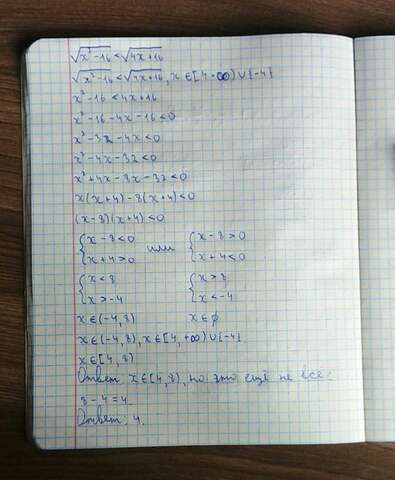 √x²-16 < √4x+16
√x²-16 < √4x+16, x ∈ [4 +∞) ∪ {-4}
x²-16 < 4x+16
x²-16-4x-16<0
x²-32-4x<0
x²-4x-32<0
x²+4x-8x-32<0
x(x+4)-8(x+4)<0
(x-8)(x+4)<0
{x-8<0 или {x-8>0
{x+4>0 {x+4<0
{x<8 {x>8
{x>-4 {x<-4
x∈(-4,8) x∈ø
x∈(-4,8), x∈[4,+∞)∪{-4}
x∈[4,8)
Ответ x∈[4,8), но это ещё не все:
8-4=4
Ответ: 4.